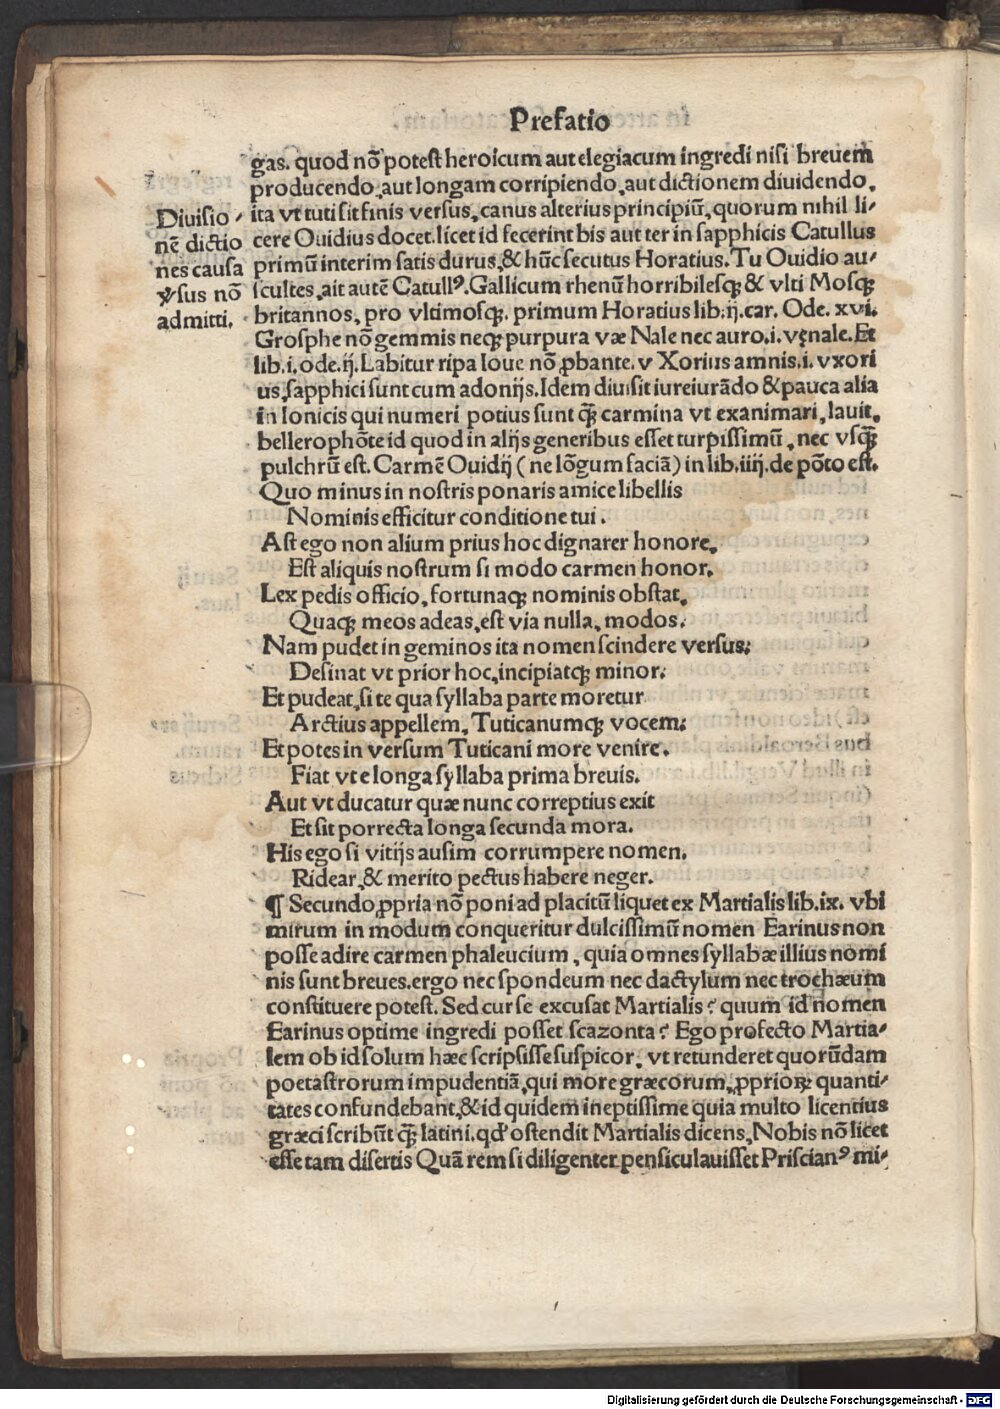 Prefatio
gas. quod nõ potest heroicum aut elegiacum ingredi nisi breuem
producendo, aut longam corripiendo, aut dictionem diuidendo,
ita vt tuti sit finis versus, canus alterius principiũ, quorum nihil li-
cere Ouidius docet. licet id fecerint bis aut ter in sapphicis Catullus
primũ interim satis durus, & hũc secutus Horatius. Tu Ouidio au-
scultes, ait autẽ Catullꝰ. Gallicum rhenũ horribilesqꝫ & vlti Mosqꝫ
britannos, pro vltimosqꝫ. primum Horatius lib. ij. car. Ode. xvi.
Grosphe nõ gemmis neqꝫ purpura væ Nale nec auro. i. vęnale. Et
lib. i. ode. ij. Labitur ripa Ioue nõ ꝓbante. v Xorius amnis. i. vxori
us, sapphici sunt cum adonijs. Idem diuisit iureiurãdo & pauca alia
in Ionicis qui numeri potius sunt q̃ꝫ carmina vt exanimari, lauit,
bellerophõte id quod in alijs generibus esset turpissimũ, nec vsq̃ꝫ
pulchrũ est. Carmẽ Ouidij ( ne lõgum faciã ) in lib. iiij. de põto est.
Quo minus in nostris ponaris amice libellis
Nominis efficitur conditione tui.
Ast ego non alium prius hoc dignarer honore,
Est aliquis nostrum si modo carmen honor.
Lex pedis officio, fortunaqꝫ nominis obstat,
Quaqꝫ meos adeas, est via nulla, modos.
Nam pudet in geminos ita nomen scindere versus:
Desinat vt prior hoc, incipiatqꝫ minor.
Et pudeat, si te qua syllaba parte moretur
Arctius appellem, Tuticanumqꝫ vocem:
Et potes in versum Tuticani more venire.
Fiat vt e longa syllaba prima breuis.
Aut vt ducatur quæ nunc correptius exit
Et sit porrecta longa secunda mora.
His ego si vitijs ausim corrumpere nomen,
Ridear, & merito pectus habere neger.
¶ Secundo ꝓpria nõ poni ad placitũ liquet ex Martialis lib. ix. vbi
mirum in modum conqueritur dulcissimũ nomen Earinus non
posse adire carmen phaleucium, quia omnes syllabæ illius nomi
nis sunt breues. ergo nec spondeum nec dactylum nec trochæum
constituere potest. Sed cur se excusat Martialis? quum id nomen
Earinus optime ingredi posset scazonta? Ego profecto Martia-
lem ob id solum hæc scripsisse suspicor, vt retunderet quorũdam
poetastrorum impudentiã, qui more græcorum, ꝓprioꝝ quanti-
tates confundebant, & id quidem ineptissime quia multo licentius
græci scribũt q̃ꝫ latini. qđ ostendit Martialis dicens, Nobis nõ licet
esse tam disertis Quã rem si diligenter pensiculauisset Priscianꝰ mi-
Diuisio-
nẽ dictio
nes causa
ꝟsus nõ
admitti.
Digitalisierung gefördert durch die Deutsche Forschungsgemeinschaft - DFG